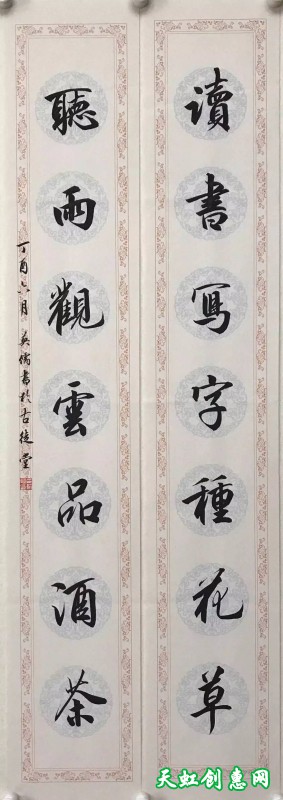 讀書寫字種花草
聽雨觀雲品酒茶
丁酉六月 英儒書於古徒堂
天虹创惠网